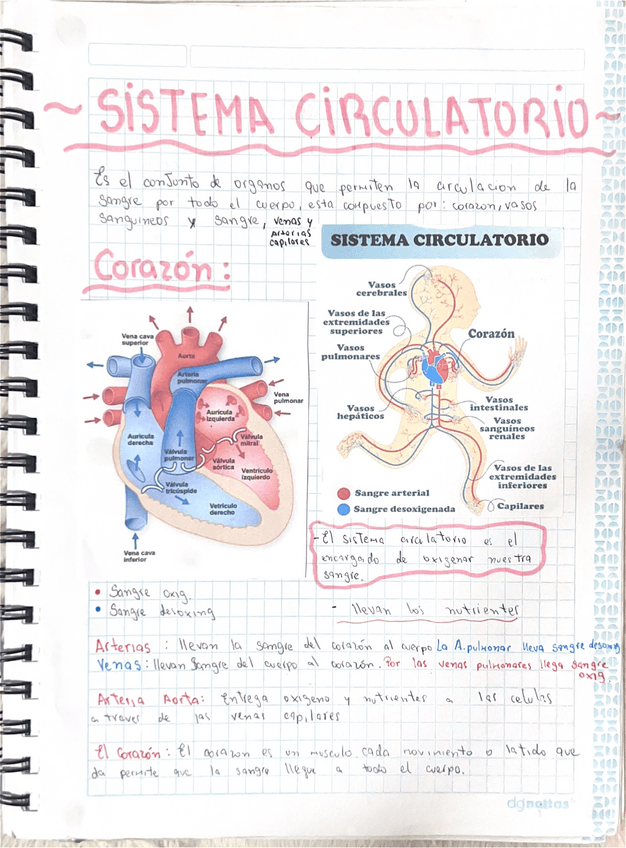 ~ SISTEMA CIRCULATORIO ~
Es el conjunto de organos que permiten la circulacion de la
sangre por todo el cuerpo, esta compuesto por: corazon, vasos
sanguineos y sangre, venas y
arterias
capilares
Corazón:
Vena cava
superior
Aorta
Arteria
pulmonar
Vena
pulmonar
Aurícula
izquierda
Aurícula
derecha
Válvula
mitral
Válvula
pulmonar
Válvula
aórtica
Ventrículo
izquierdo
Válvula
tricúspide
Vetrículo
derecho
Vena cava
inferior
• Sangre oxig
• Sangre desoxing
SISTEMA CIRCULATORIO
Vasos
cerebrales
Vasos de las
extremidades
superiores
Corazón
Vasos
pulmonares
Vasos
hepáticos
Vasos
intestinales
Vasos
sanguíneos
renales
Vasos de las
extremidades
inferiores
Capilares
Sangre arterial
Sangre desoxigenada
- El sistema circulatorio es el
encargado de oxigenar nuestra
sangre.
- llevan los nutrientes
Arterias : llevan la sangre del corazón al cuerpo La A.pulmonar lleva sangre desoxig
Venas : llevan Sangre del cuerpo al corazón. Por las venas pulmonares llega sangre
oxig.
Arteria Aorta: Entrega oxigeno y nutrientes a las celulas
a traves de las venas capilares
El Corazón : El corazon es un musculo cada movimiento o latido que
da permite que la sangre llegue a todo el cuerpo.
dgnottas